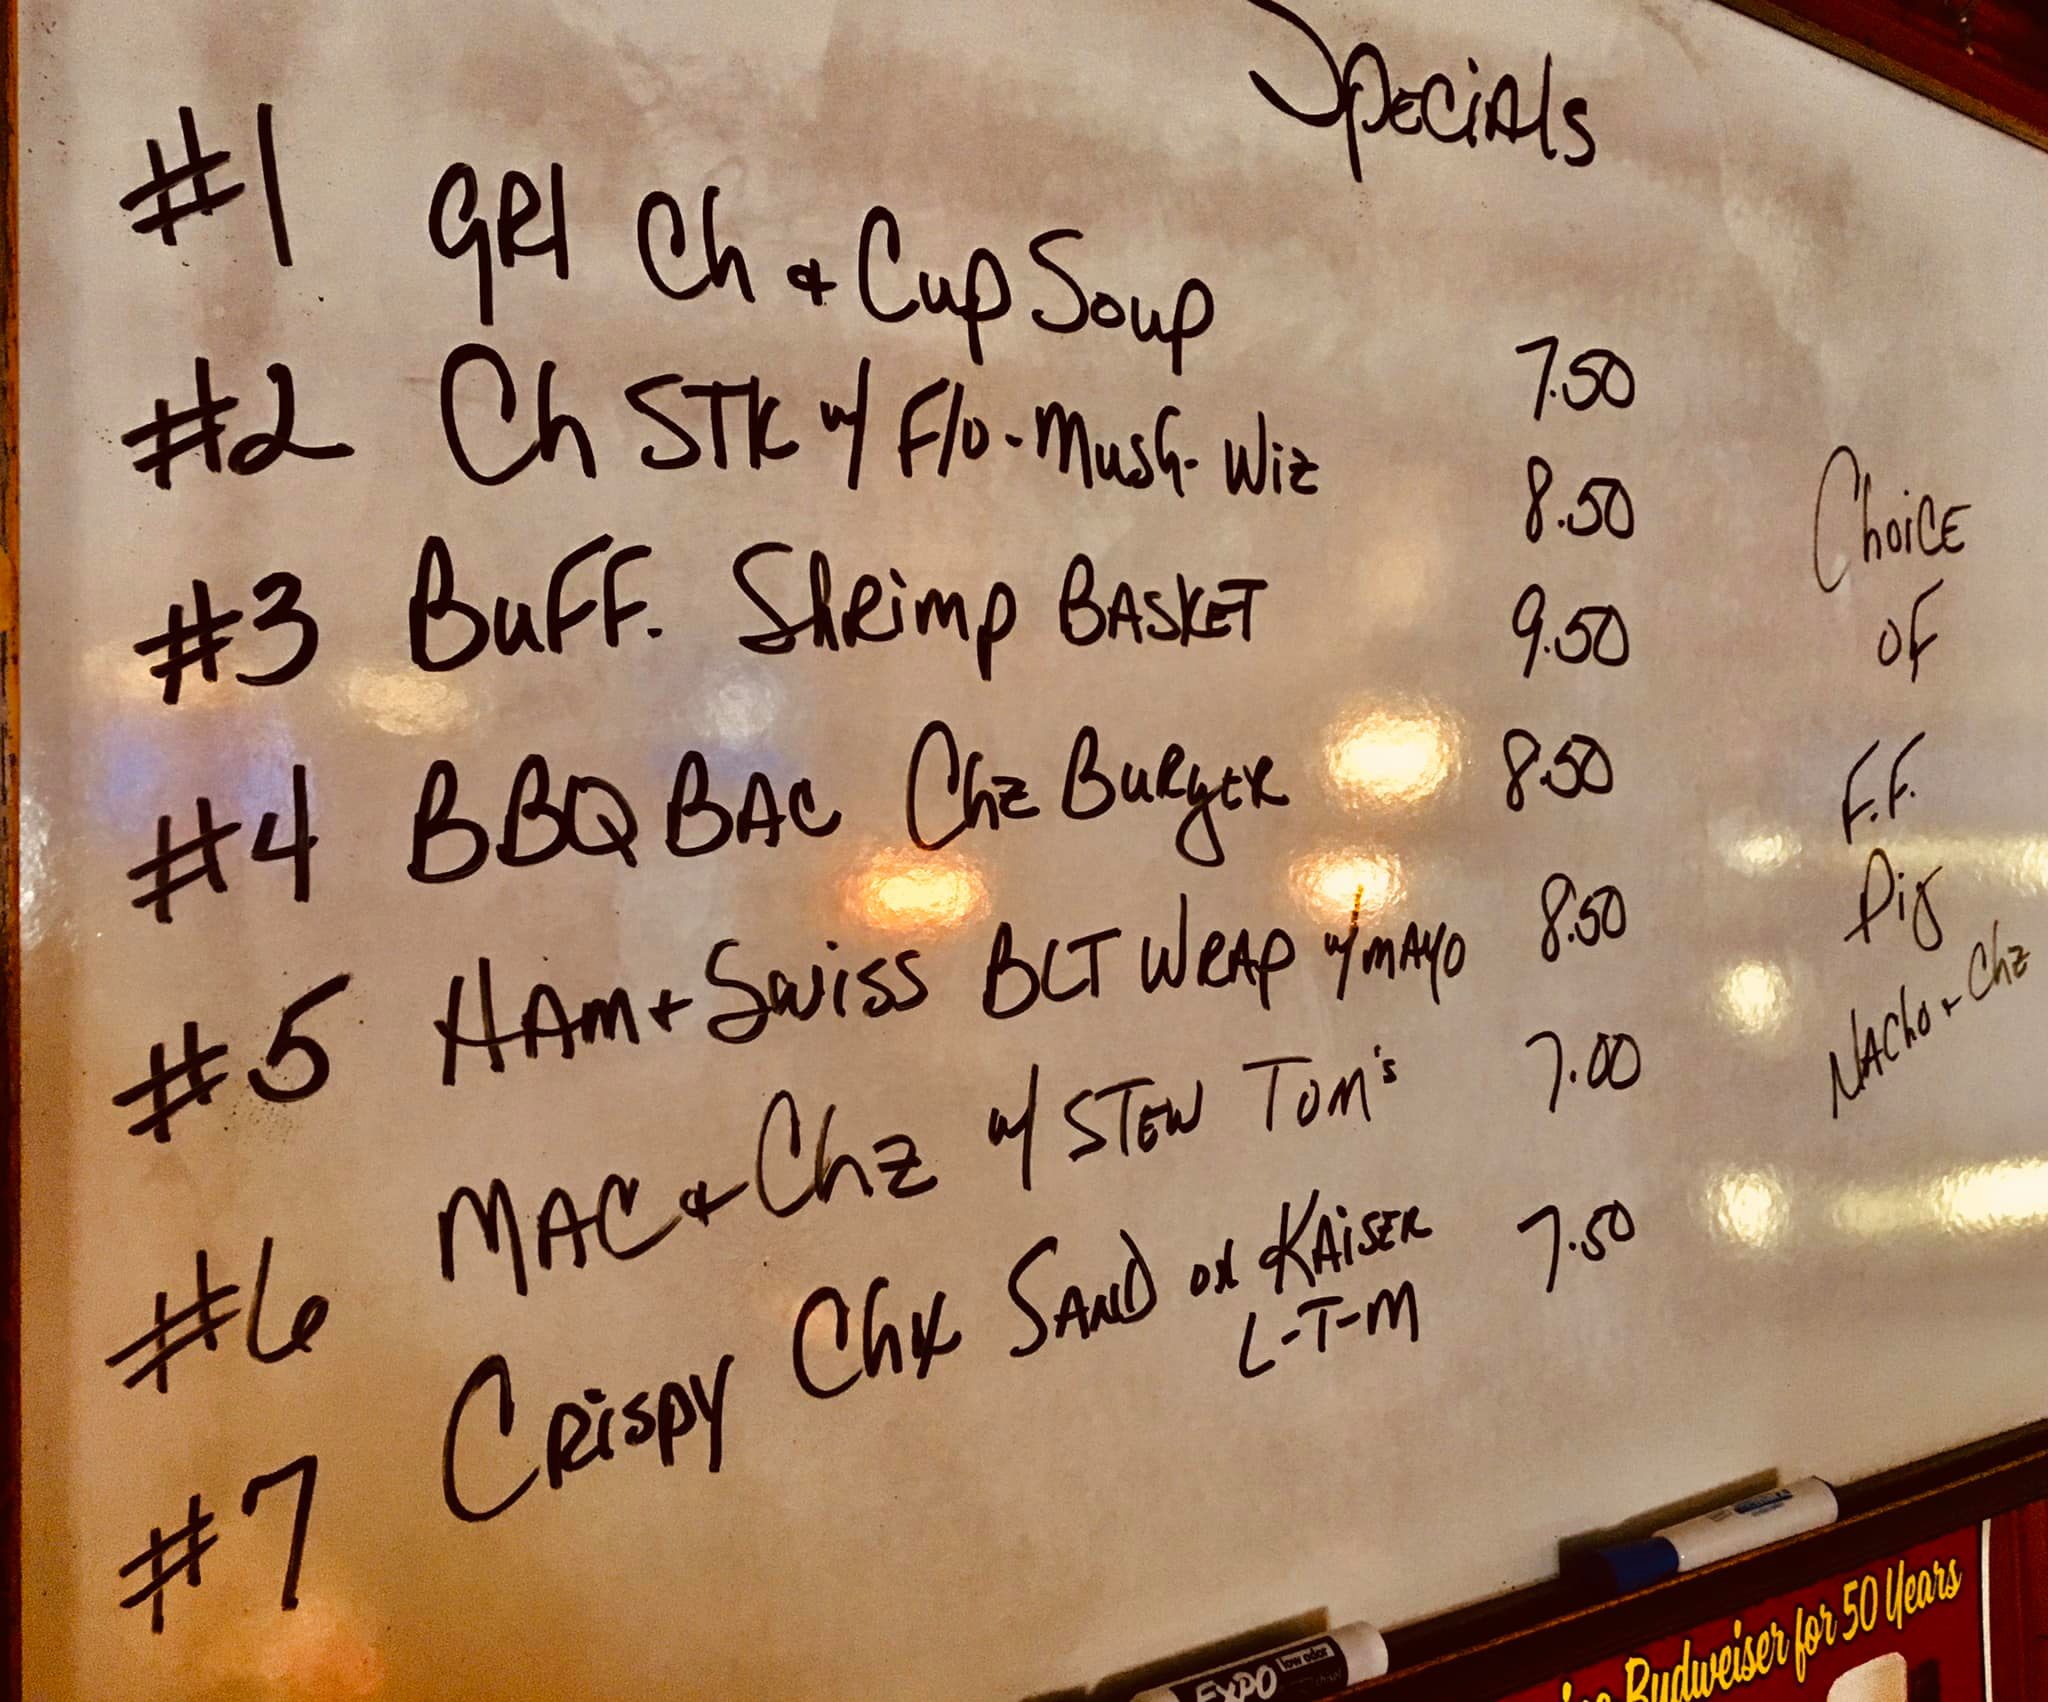 Specials
#1 GRl Ch & Cup Soup 7.50
#2 Ch STK w/ F/O - Mush - Wiz 8.50
#3 Buff. Shrimp BASKET 9.50
#4 BBQ BAC Chz BURgER 8.50
#5 HAm + Swiss BLT WRAP w/ MAYO 8.50
#6 MAC & Chz w/ STEW TOM's 7.00
#7 CRispy Chx SAND ON KAiSER 7.50
L-T-M
ChoiCE
of
F.F.
NAChO + Chz
Budweiser for 50 Years
EXPO
low odor